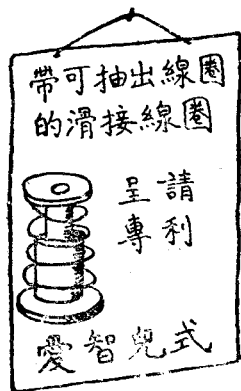 帶可抽出線圈
的滑接線圈
呈請
專利
愛智兒式